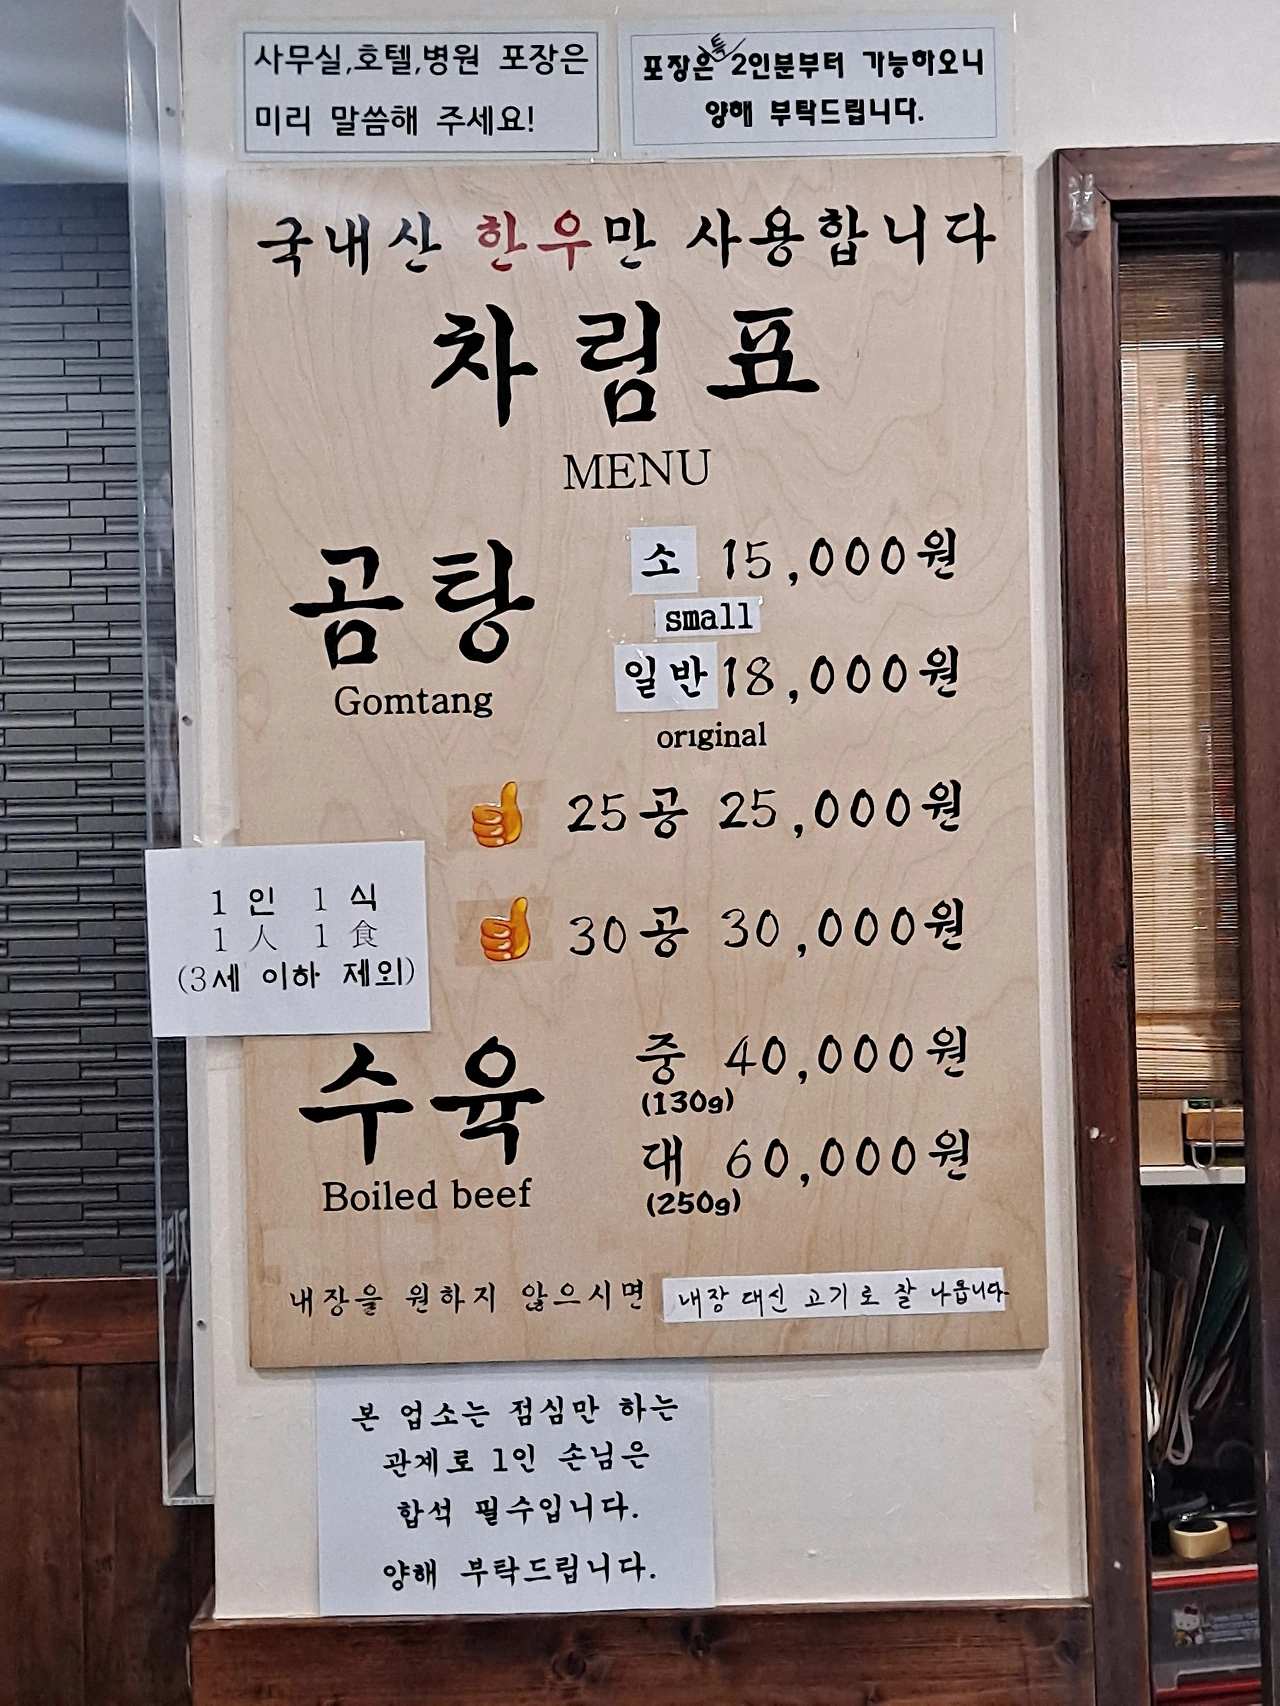 사무실,호텔,병원 포장은
미리 말씀해 주세요!
포장은 특 2인분부터 가능하오니
양해 부탁드립니다.
국내산 한우만 사용합니다
차림표
MENU
곰탕
Gomtang
소 15,000원
small
일반 18,000원
original
25공 25,000원
30공 30,000원
1 인 1 식
1 人 1 食
(3세 이하 제외)
수육
Boiled beef
중 40,000원
(130g)
대 60,000원
(250g)
내장을 원하지 않으시면 내장 대신 고기로 잘 나옵니다
본 업소는 점심만 하는
관계로 1인 손님은
합석 필수입니다.
양해 부탁드립니다.